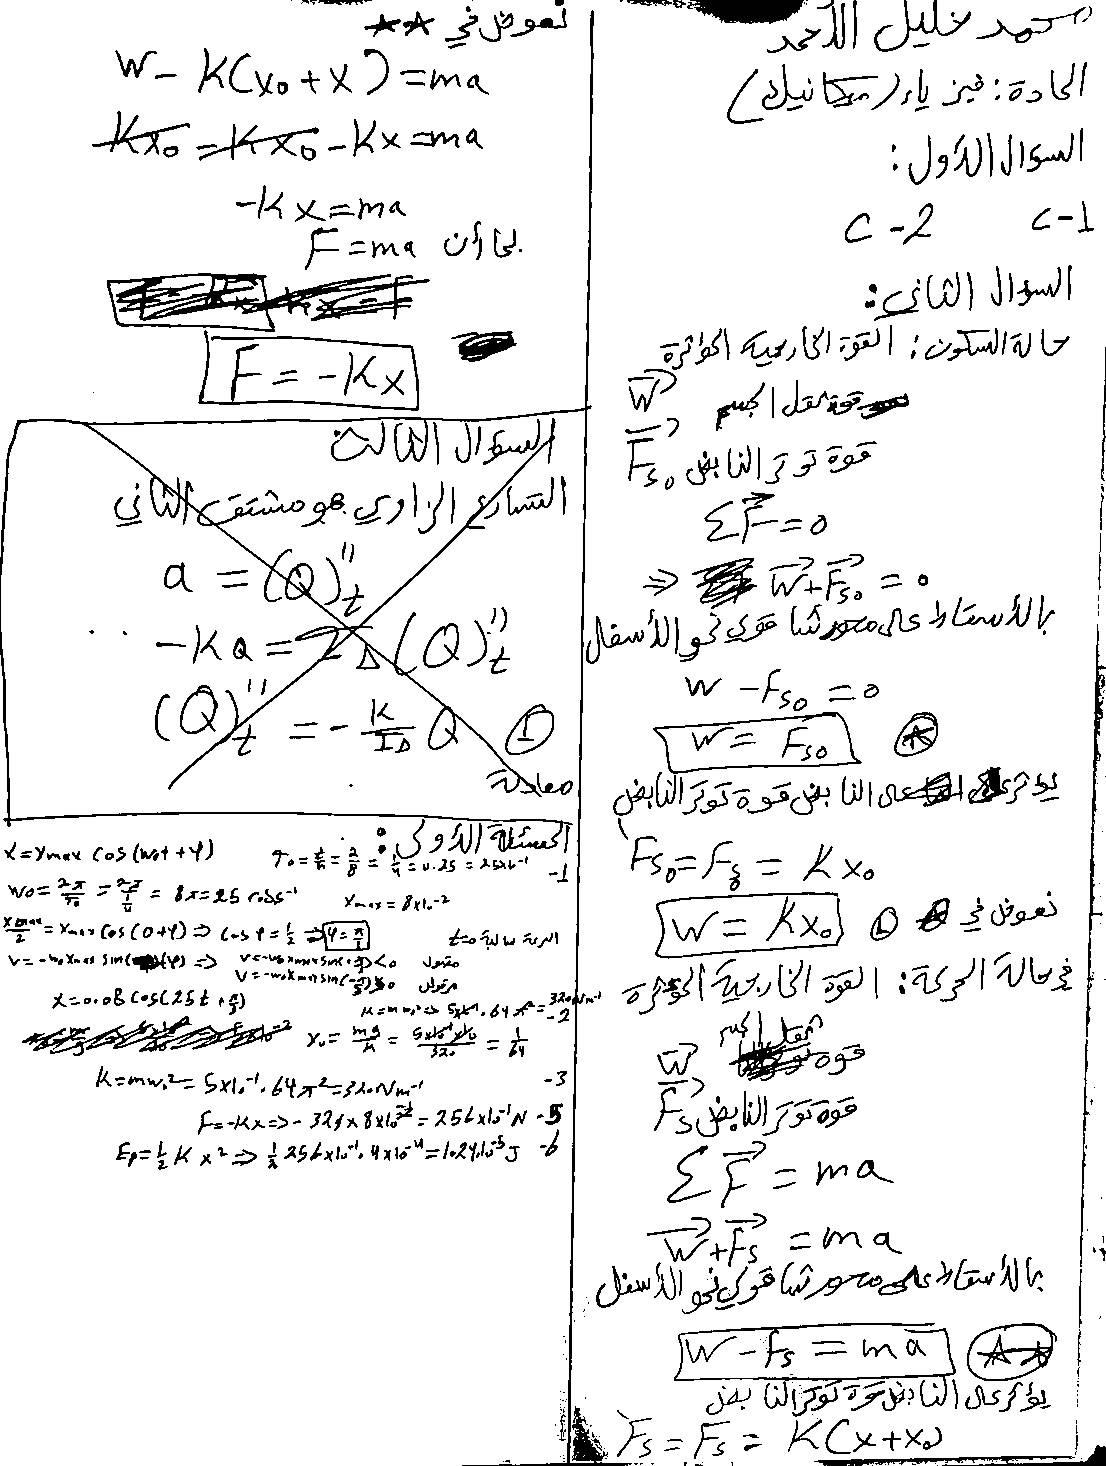 محمد خليل الأحمد
المادة: فيزياء (ميكانيك)
السؤال الأول:
c -1 c -2
السؤال الثاني:
حالة السكون: القوة الخارجية المؤثرة
W قوة ثقل الجسم
Fs₀ قوة توتر النابض
ΣF = 0
⇒ W + Fs₀ = 0
بالأسقاط على محور شاقولي نحو الأسفل
W - Fs₀ = 0
W = Fs₀ ★
يؤثر على النابض قوة توتر النابض
F's₀ = Fs₀ = Kx₀
نعوض في 1
W = Kx₀
في حالة الحركة: القوة الخارجية المؤثرة
W قوة ثقل الجسم
Fs قوة توتر النابض
ΣF = ma
W + Fs = ma
بالأسقاط على محور شاقولي نحو الأسفل
W - Fs = ma ★★
يؤثر على النابض قوة توتر النابض
F's = Fs = K(x+x₀)
نعوض في ★★
W - K(x₀+x) = ma
Kx₀ - Kx₀ - Kx = ma
-Kx = ma
بما أن F = ma
F = -Kx
السؤال الثالث
التسارع الزاوي هو مشتق الثاني
a = (Q)''t
-KQ = IΔ (Q)''t
(Q)''t = - K/IΔ Q ①
معادلة
المسئلة الأولى:
1- T₀ = t/n = 2/8 = 1/4 = 0.25 = 25x10⁻²
x = xmax cos(w₀t + φ)
w₀ = 2π/T₀ = 2π/(1/4) = 8π = 25 rad s⁻¹
xmax = 8x10⁻²
xmax/2 = xmax cos(0+φ) ⇒ cos φ = 1/2 ⇒ φ = π/3
t=0
x = 0.08 cos(25t + π/3)
2- K = mw₀² ⇒ 5x10⁻¹ . 64π² = 320 Nm⁻¹
x₀ = mg/K = 5x10⁻¹x10/320 = 1/64
3- K = mw₀² = 5x10⁻¹ . 64π² = 320 Nm⁻¹
5- F = -Kx ⇒ - 320 x 8x10⁻² = 256x10⁻¹ N
6- Ep = 1/2 K x² ⇒ 1/2 256x10⁻¹ . 4x10⁻⁴ = 1024.10⁻⁵ J